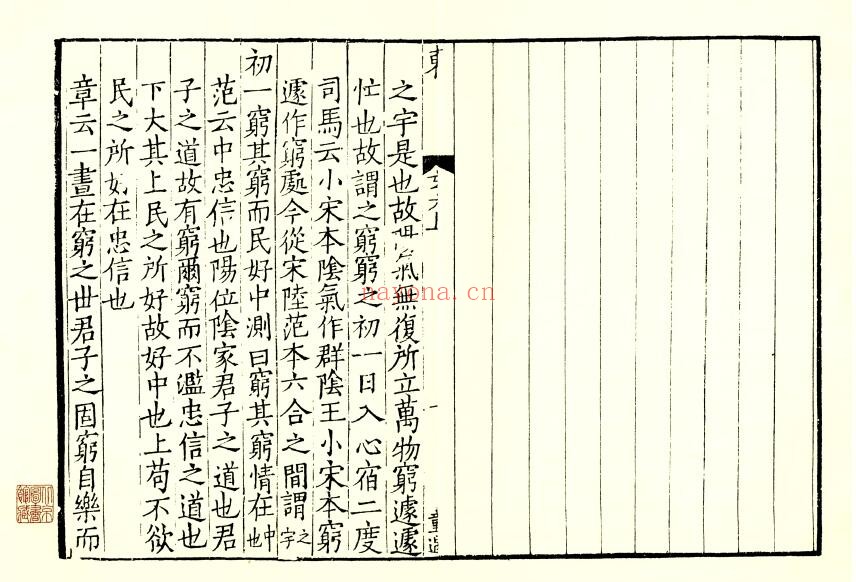 之宇是也故世氣無復所立萬物窮遽遽
忙也故謂之窮窮之初一日入心宿二度
司馬云小宋本陰氣作群陰王小宋本窮
遽作窮處今從宋陸范本六合之間謂之宇
初一窮其窮而民好中測曰窮其窮情在中也
范云中忠信也陽位陰家君子之道也君
子之道故有窮爾窮而不濫忠信之道也
下大其上民之所好故好中也上苟不欲
民之所好在忠信也
章云一晝在窮之世君子之固窮自樂而
nayona.cn